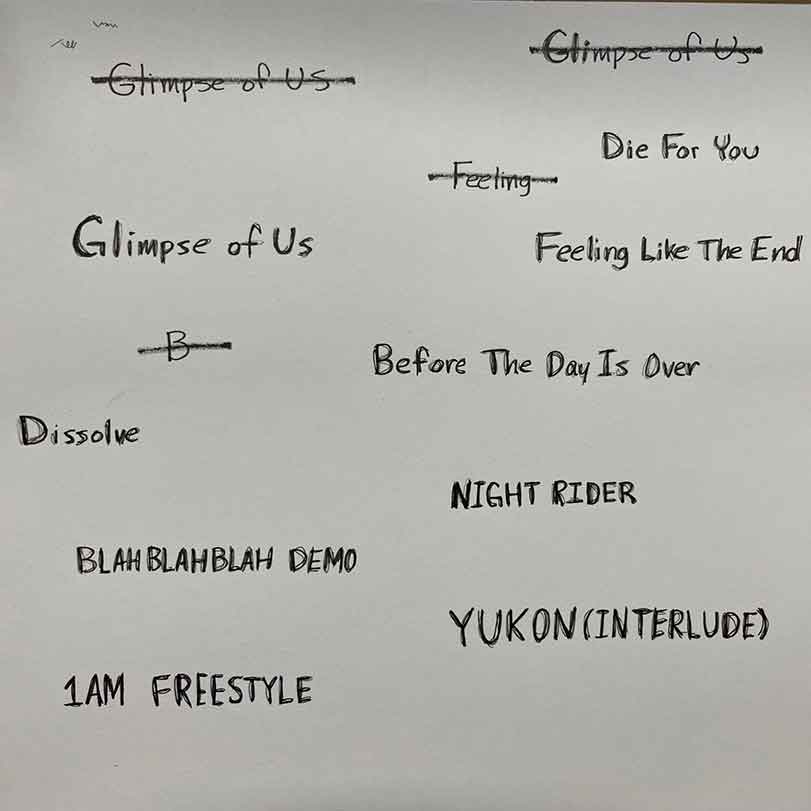 Glimpse of Us
Glimpse of Us
Die For You
Feeling
Glimpse of Us
Feeling Like The End
B
Before The Day Is Over
Dissolve
NIGHT RIDER
BLAHBLAHBLAH DEMO
YUKON (INTERLUDE)
1AM FREESTYLE